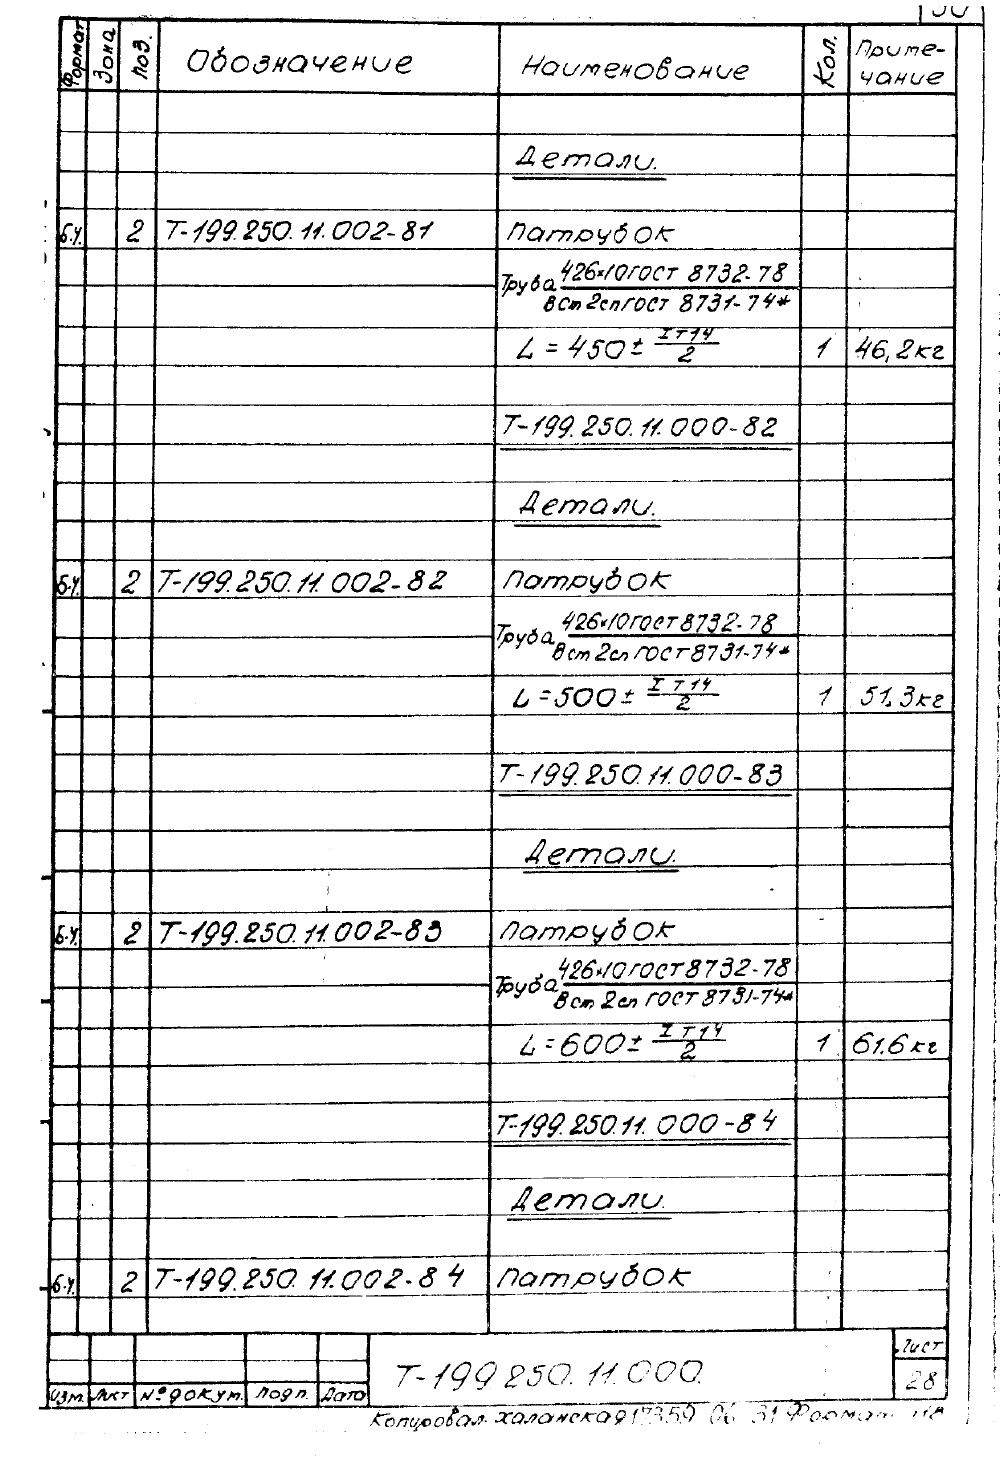 Формат Зона Поз. Обозначение Наименование Кол. Приме-
чание
Детали.
Б.Ч. 2 Т-199.250.11.002-81 Патрубок
Труба 426×10 ГОСТ 8732-78
В ст 2сп ГОСТ 8731-74*
L=450± IT14/2 1 46,2кг
Т-199.250.11.000-82
Детали.
Б.Ч. 2 Т-199.250.11.002-82 Патрубок
Труба 426×10 ГОСТ 8732-78
В ст 2сп ГОСТ 8731-74*
L=500± IT14/2 1 51.3кг
Т-199.250.11.000-83
Детали.
Б.Ч. 2 Т-199.250.11.002-83 Патрубок
Труба 426×10 ГОСТ 8732-78
В ст 2сп ГОСТ 8731-74*
L=600± IT14/2 1 61.6кг
Т-199.250.11.000-84
Детали.
Б.Ч. 2 Т-199.250.11.002-84 Патрубок
Изм. Лист № докум. Подп. Дата Т-199.250.11.000. Лист
28
Копировал. Халанская 17359 06 31 Формат